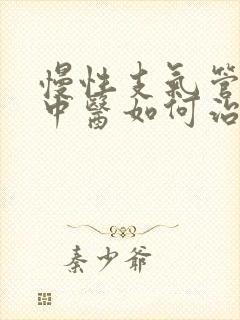 慢性支氣管
中醫如何治
秦少爺